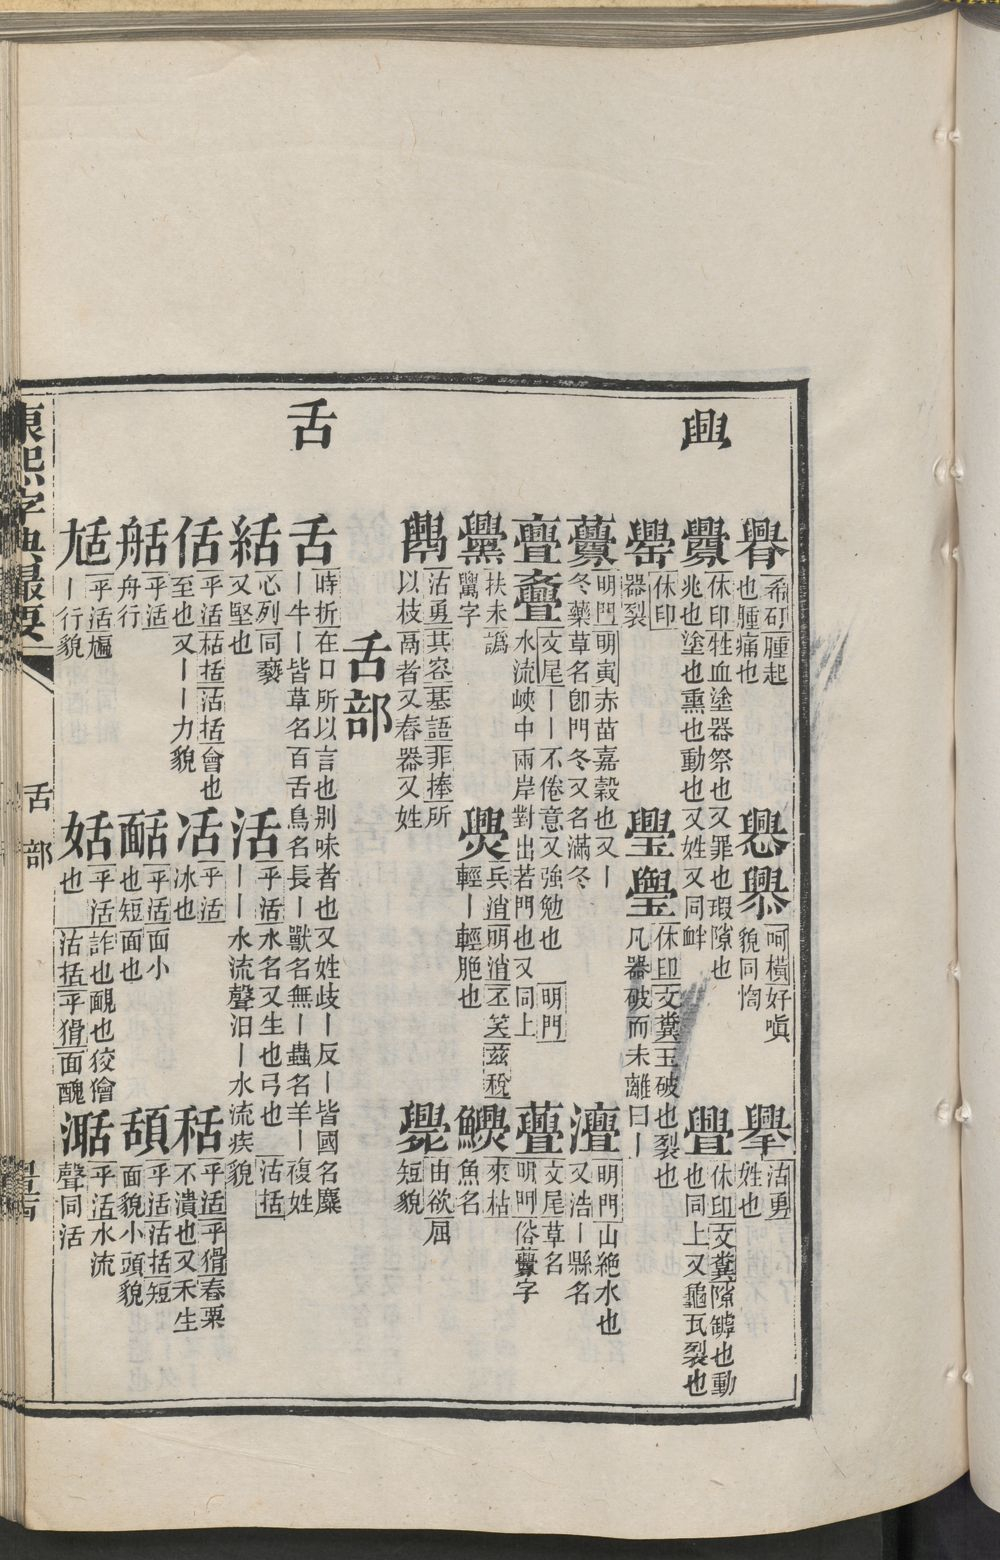 舋 舌
希印腫起也腫痛也 貌同惸 呵橫好嗔 姓也 沽勇
釁 休印牲血塗器祭也又罪也瑕隙也兆也塗也熏也動也又姓又同衅 舋 休印文糞隙罅也動也同上又龜瓦裂也
休印器裂 休印文糞玉破也裂也凡器破而未離曰丨
明門明寅赤苗嘉穀也又丨冬藥草名卽門冬又名滿冬 明門山絶水也又浩丨縣名
亹 文尾丨丨不倦意又強勉也 明門 水流峽中兩岸對出若門也又同上 文尾草名 明門俗虋字
爨 扶未譌鸎字 兵消明消丕笑茲稅輕丨輕脃也 來枯魚名
沽勇其容基語非捧所以枝鬲者又舂器又姓 由欲屈短貌
舌部
舌 時折在口所以言也别味者也又姓歧丨反丨皆國名麋丨牛丨皆草名百舌鳥名長丨獸名無丨蟲名羊丨複姓
絬 心列同褻又堅也 活 平活水名又生也弓也 沽括 丨丨水流聲汨丨水流疾貌
佸 平活枯括沽括會也至也又丨丨力貌 冾 平活冰也 秳 平活平猾舂粟不潰也又禾生
舩 平活舟行 平活面小也短面也 頢 平活沽括短面貌小頭貌
平活尳丨行貌 姡 平活詐也靦也狡獪也 沽括平猾面醜 平活水流聲同活
康熙字典撮要 舌部